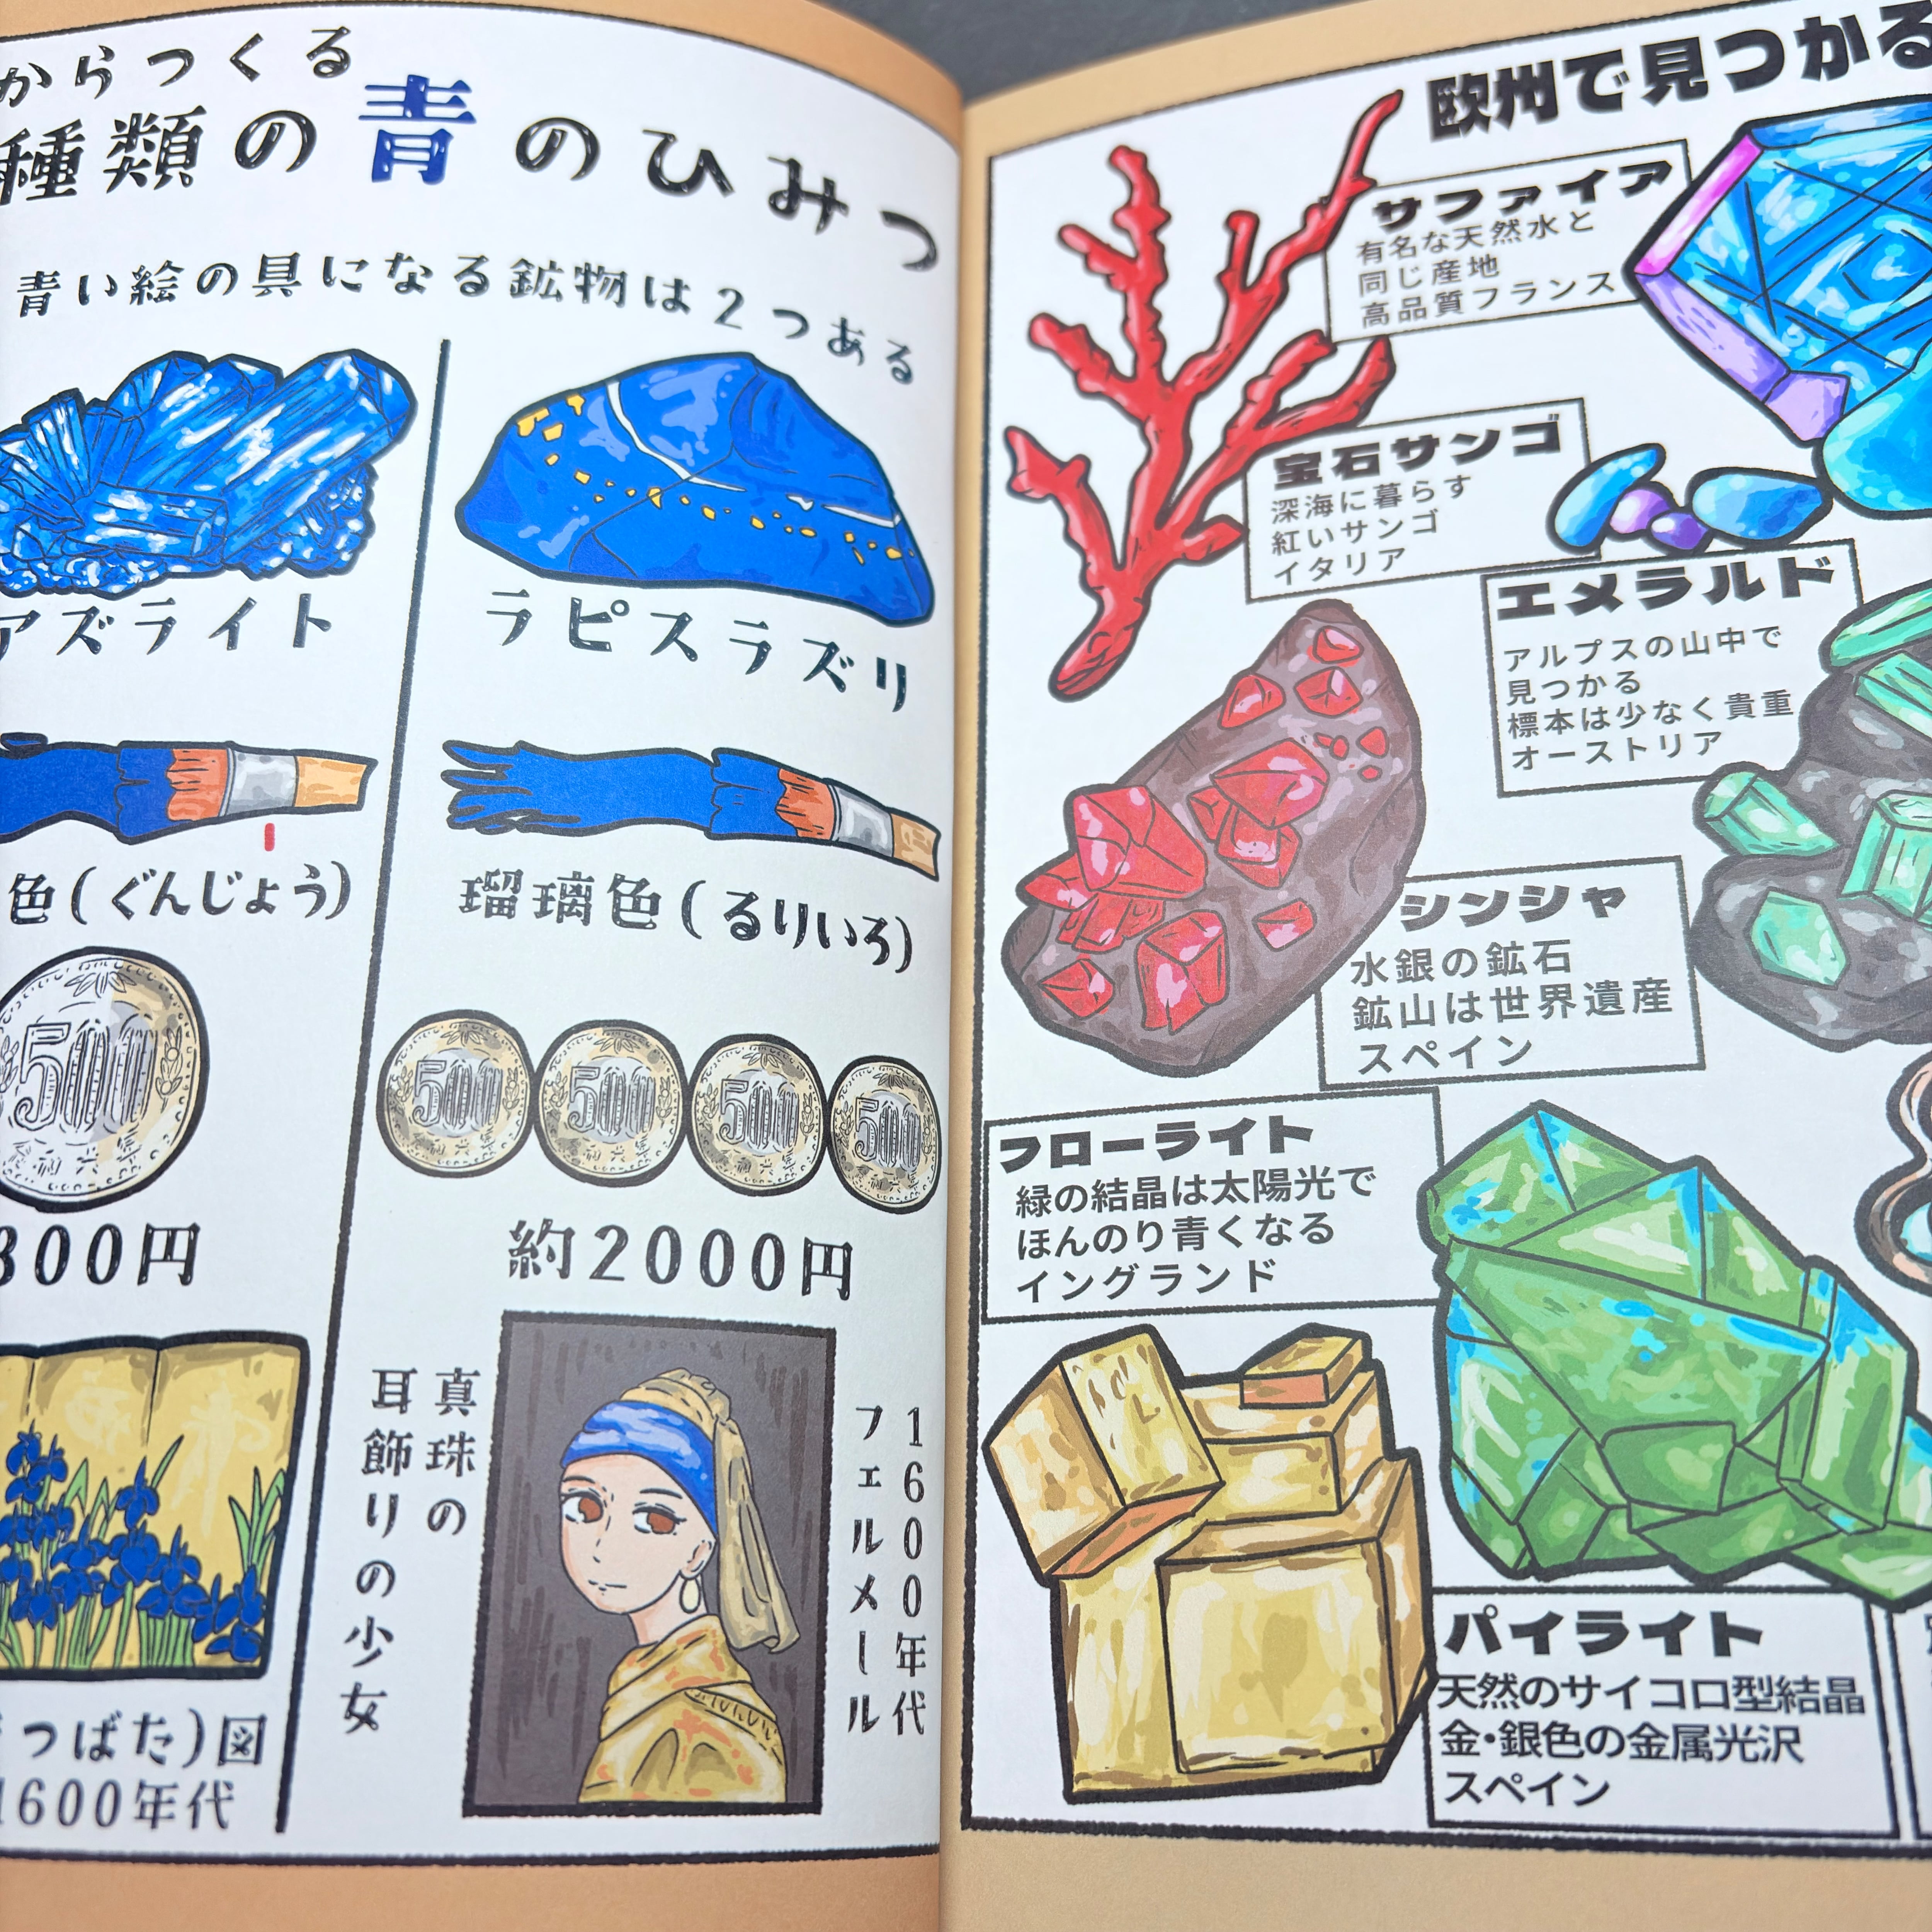 からつくる
種類の青のひみつ
青い絵の具になる鉱物は2つある
アズライト
色(ぐんじょう)
500
800円
つばた)図
1600年代
ラピスラズリ
瑠璃色(るりいろ)
500 500 500 500
約2000円
真珠の
耳飾りの少女
1600年代
フェルメール
欧州で見つかる
サファイア
有名な天然水と
同じ産地
高品質フランス
宝石サンゴ
深海に暮らす
紅いサンゴ
イタリア
エメラルド
アルプスの山中で
見つかる
標本は少なく貴重
オーストリア
シンシャ
水銀の鉱石
鉱山は世界遺産
スペイン
フローライト
緑の結晶は太陽光で
ほんのり青くなる
イングランド
パイライト
天然のサイコロ型結晶
金・銀色の金属光沢
スペイン